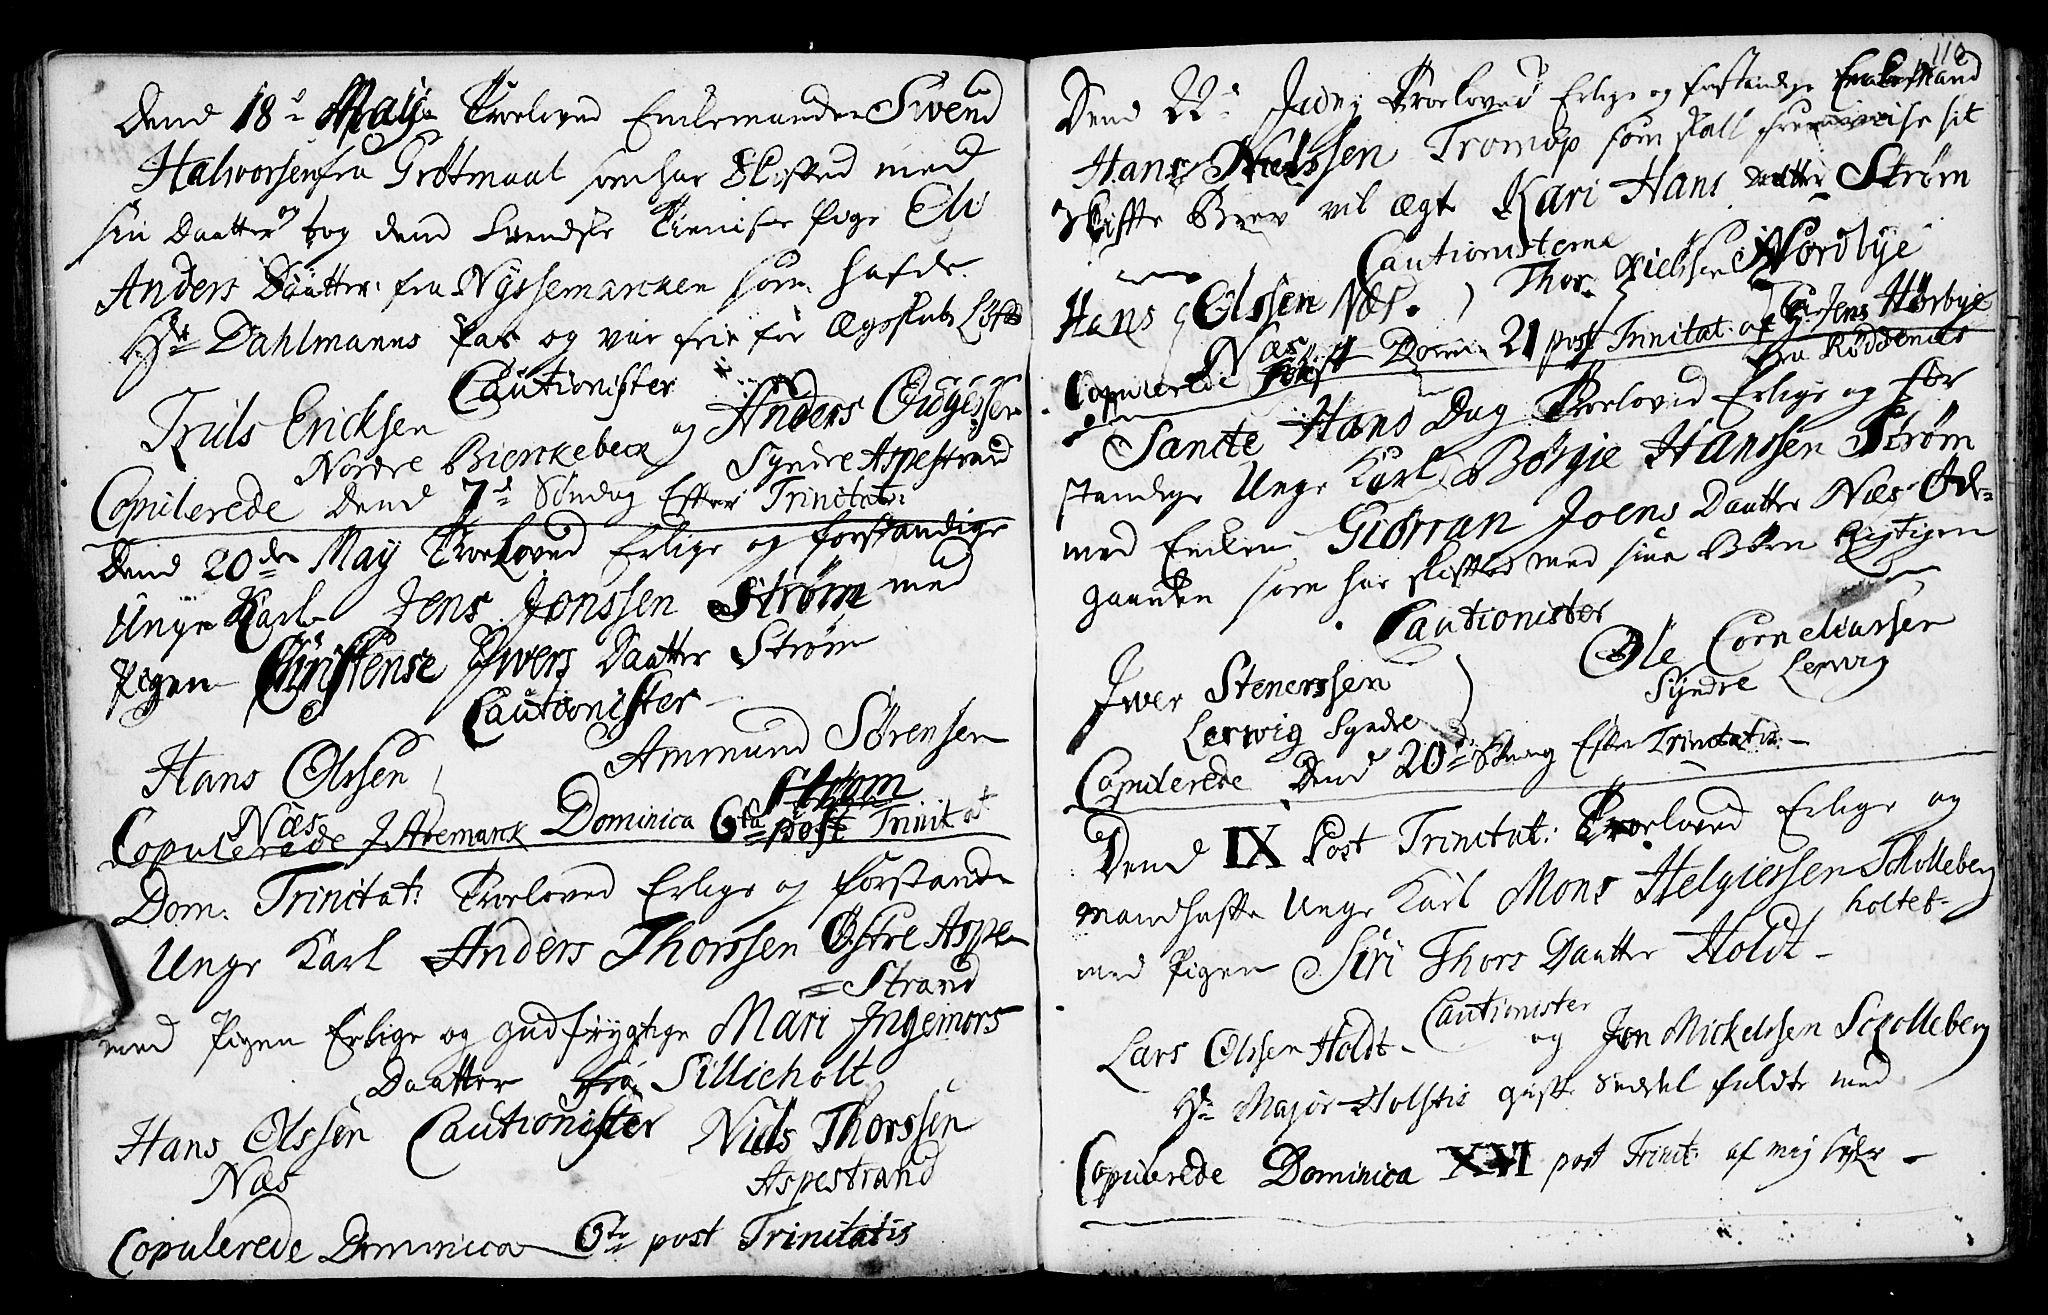 Dend 18de Maij Troloved Enkemanden Swend
Halworsen fra Grötmaal som har Skifted med
sin Daatter og tog dend Svendske Tieniste Pige Eli
Anders Daatter fra Nyssemarcken som hafde
Hr Dahlmanns Pas og var frie for Ægteskabs Löfte
Cautionister
Truls Ericksen og Anders
Nordre Bierckebeck Syndre Aspestrand
Copulerede Dend 7de Söndag Efter Trinitat:
Dend 20de May Troloved Erlige og forstandige
Unge Karl Jens Jonssen Strøm med
Pigen Christense Iwers Daatter Strøm
Cautionister
Hans Olssen Ammund Sørensen
Næs Strøm
Copulerede J Aremarck Dominica 6ta post Trinitat
Dom: Trinitat: Troloved Erlige og forstand
Unge Karl Anders Thorssen Østre Aspe
= Strand
med Pigen Erlige og gudfrygtige Mari Ingemors
Daatter fra Sillieholt
Hans Olssen Cautionister Niels Thorssen
Næs Aspestrand
Copulerede Dominica 6te post Trinitatis
110
Dend 22de Juny Troloved Erlige og forstandige Enkemand
Hans Nielssen Tromop som skall fremvise sit
Skifte Brev vil ægte Kari Hans Daatter Strøm
Cautionisterne
Hans Olssen Næs Thor Nielssen Nordbye
Næs
Copulerede Dom 21 post Trinitat: af Hr Jens Hörbye
fra Röddenæs
Sancte Hans Dag Troloved Erlige og for
standige Unge Karl Börgie Hanssen Strøm
med Enken Giörran Joens Daatter Næs Öde=
gaarden som har skifted med sine Börn Rigtigen
Cautionister
Iwer Stenerssen Ole Corneliussen
Lerwig Syndre Syndre Lerwig
Copulerede Dend 20de Söndag Efter Trinitatis
Dend IX Post Trinitat: Troloved Erlige og
mandhafte Unge Karl Mons Helgiessen Scholleberg
holtet
med Pigen Siri Thors Daatter Holdt
Cautionister
Lars Olssen Holdt og Jon Mickelssen Scholleberg
Hr Major Holstis gifte Seddel fuldte med
Copulerede Dominica XVI post Trinit: af mig